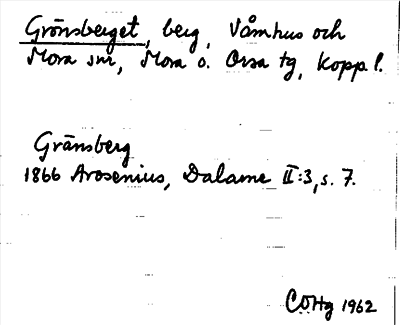 Gränsberget, berg, Våmhus och
Mora snr, Mora o. Orsa tg, Kopp. l.
Gränsberg
1866 Arosenius, Dalarne II:3, s. 7.
COHg 1962